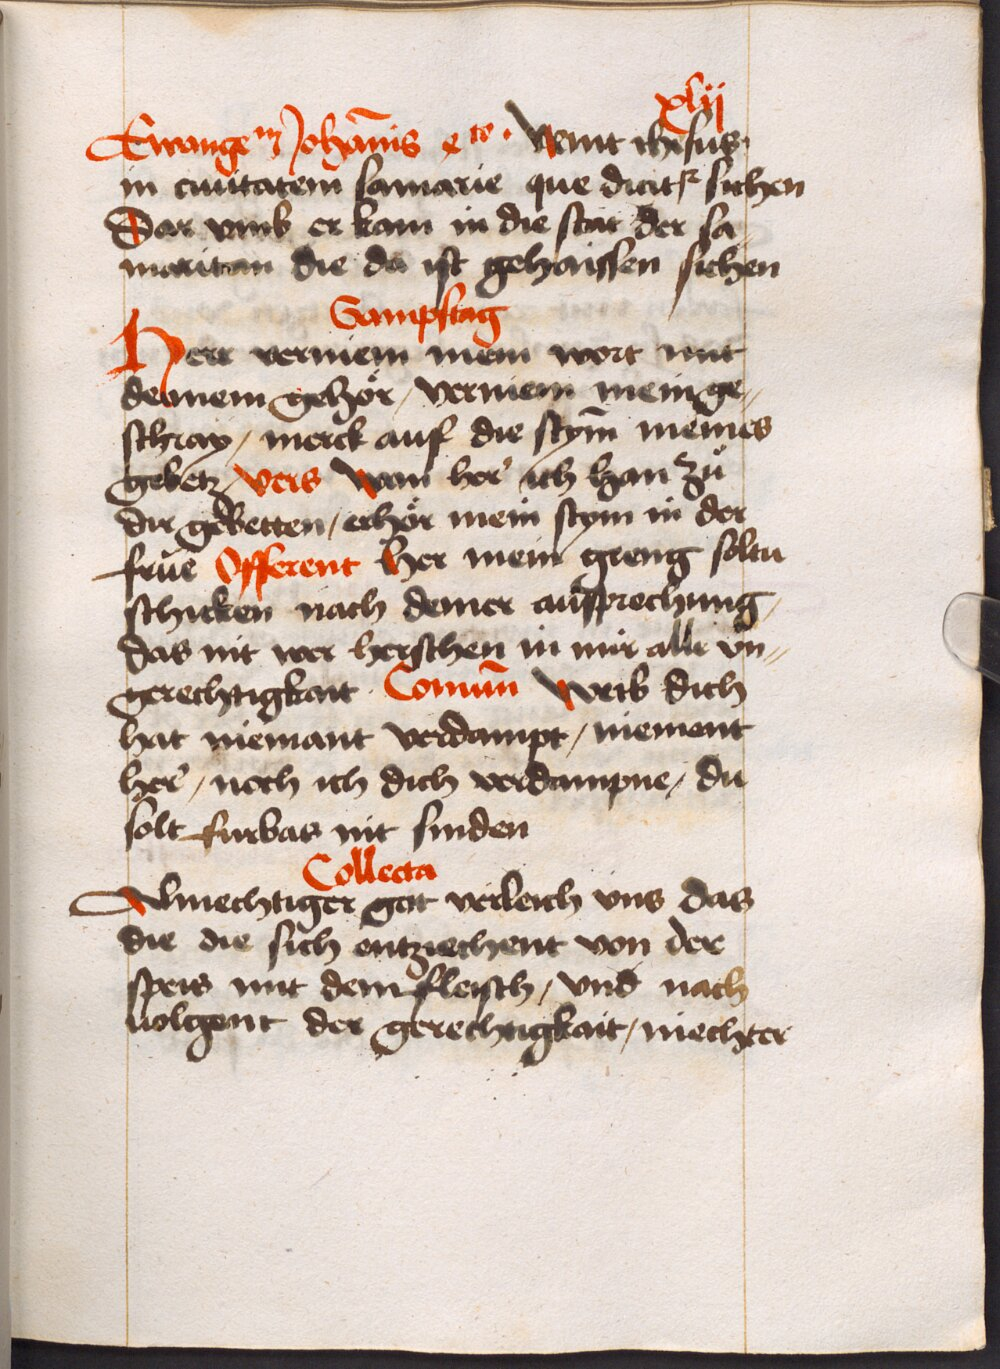 xlij
Ewange^m Johānis 4^to. Venit ihesus
in ciuitatem samarie que dicit^r sichen
Dar vmb er kam in die stat der sa
maritan die da ist gehaissen sichen
Sampstag
Herr vernem mein wort mit
deinem gehör / vernem mein ge„
schray / merck auf die stym̄ meines
gebetz Vers Wan her ich han zů
dir gebetten / erhör mein stym in der
frůe Offerent Her mein geng soltu
schicken nach deiner aussprechung /
das nit wer herschen in mir alle vn„
gerechtigkait Comūn Weib dich
hat niemant verdampt / niement
her / noch ich dich verdampne / du
solt furbas nit sunden
Collecta
Almechtiger got verleich vns das
die die sich entziechent von der
speis mit dem fleisch / vnd nach
uolgent der gerechtigkait / niechter